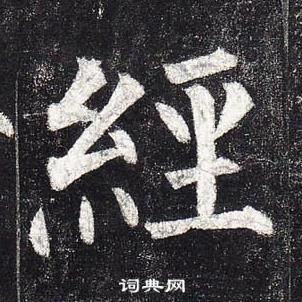 經
词典网